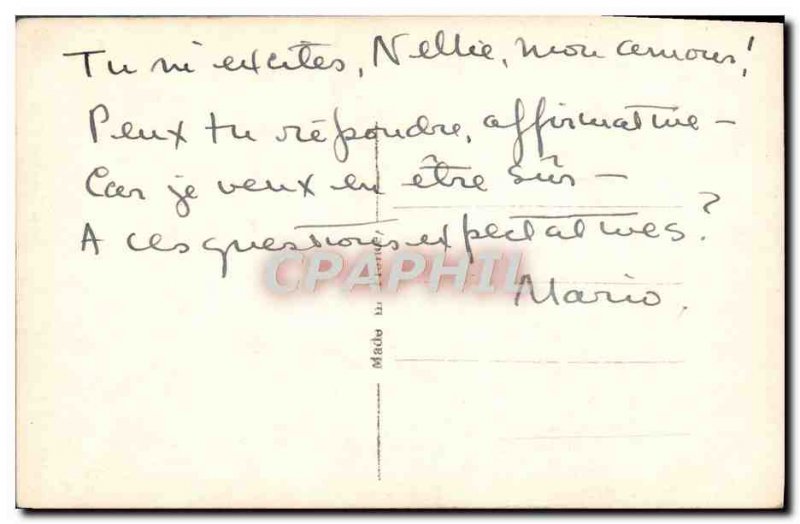 Tu m'excites, Nellie, mon amour!
Peux tu répondre, affirmative –
Car je veux en être sûr –
A ces questions expectatives?
CPAPHIL
Mario.
Made in France